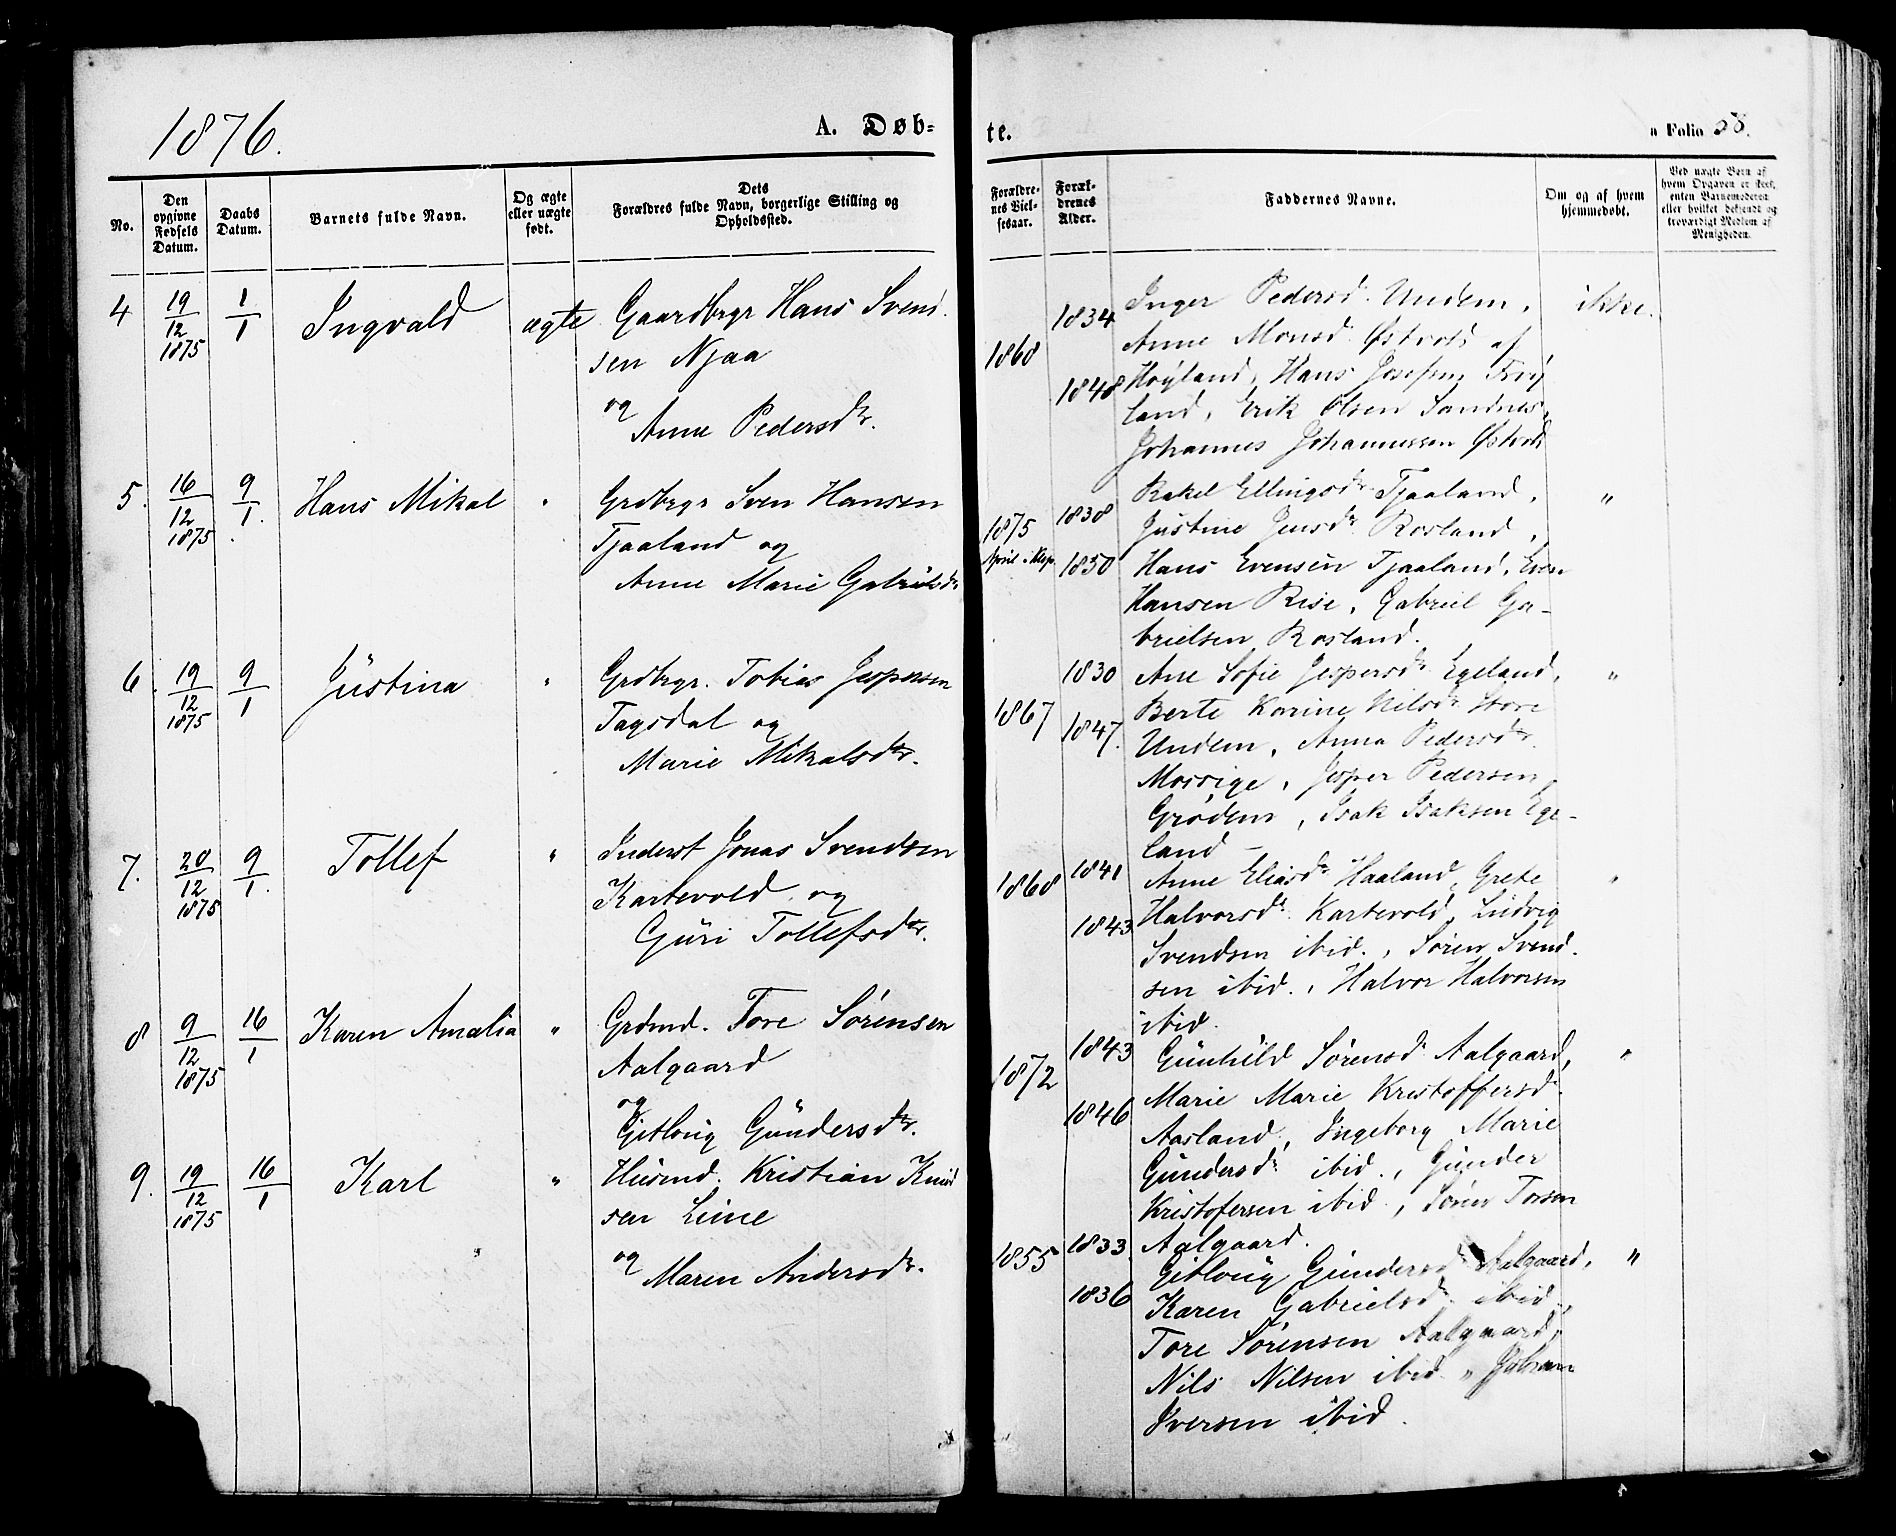 1876.
A. Døb=
te.
" Folio 58.
No.
Den opgivne Fødsels Datum.
Daabs Datum.
Barnets fulde Navn.
Og ægte eller uægte født.
Dets Forældres fulde Navn, borgerlige Stilling og Opholdssted.
Forældrenes Vielsesaar.
Forældrenes Alder.
Faddernes Navne.
Om og af hvem hjemmedøbt.
Ved uægte Børn af hvem Opgaven er skeet, enten Barnemoderen eller hvilket bekjendt og troværdigt Medlem af Menigheden.
4 19/12 1875 1/1 Ingvald ægte Gaardbrgr Hans Svend
sen Njaa
og
Anne Pedersdtr.
1868
1834
1848
Inger Pedersd. Undem,
Anne Monsd. Østvold af
Høyland, Hans Josefsen Frøy
land, Erik Olsen Sandnes,
Johannes Johannessen Østvold
ikke.
5. 16/12 1875. 9/1. Hans Mikal " Grdbrgr Sven Hansen
Tjaaland og
Anne Marie Gabrielsdtr
1875
April i Klep.
1838
1850
Rakel Ellingsdr. Tjaaland,
Justine Jensdr. Rosland,
Hans Evensen Tjaaland, Even
Hansen Rise, Gabriel Ga-
brielsen Rosland.
"
6. 19/12 1875 9/1 Justina " Grdbrgr. Tobias Jespersen
Tagsdal og
Marie Mikalsdtr.
1867
1830
1847.
Ane Sofie Jespersdr. Egeland,
Berte Karine Nilsdr. Store
Undem, Anna Pedersdtr.
Mossige, Jesper Pedersen
Grødem, Isak Isaksen Ege-
land -
"
7. 20/12 1875 9/1. Tollef " Inderst Jonas Svendsen
Kartevold og
Guri Tollefsdtr.
1868
1841
1843
Anne Eliasdr. Haaland, Grete
Halvorsdr. Kartevold, Ludvig
Svendsen ibid., Søren Svend
sen ibid., Halvor Halvorsen
ibid.
"
8 9/12 1875 16/1 Karen Amalia " Grdmd. Tore Sørensen
Aalgaard
og
Gitloug Gundersdtr.
1872
1843
1846
Gunhild Sørensdr. Aalgaard,
Marie Marie Kristoffersd.
Aasland, Ingeborg Marie
Gundersdr. ibid., Gunder
Kristofersen ibid., Søren Torsen
Aalgaard.
"
9. 19/12 1875 16/1 Karl " Husmd. Kristian Knud
sen Lime
og Maren Andersdr.
1855
1833
1836
Gitloug Gundersdr. Aalgaard,
Karen Gabrielsdr. ibid.,
Tore Sørensen Aalgaard,
Nils Nilsen ibid.,
Iversen ibid.
"